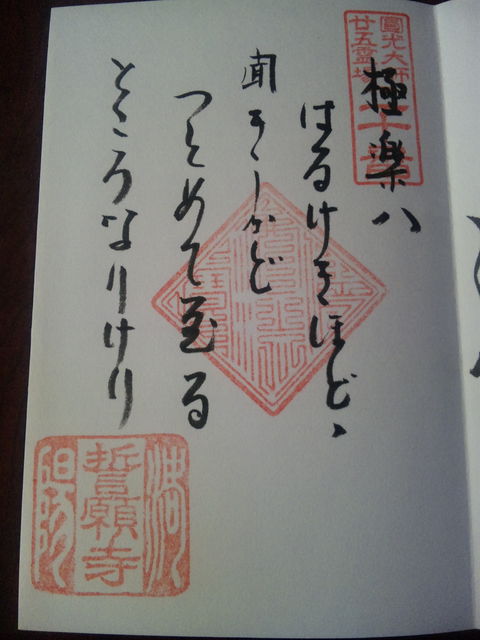 圓光大師
廿五霊場
極楽ハ
はるけきほどゝ
聞きしかど
つとめて至る
ところなりけり
誓願寺